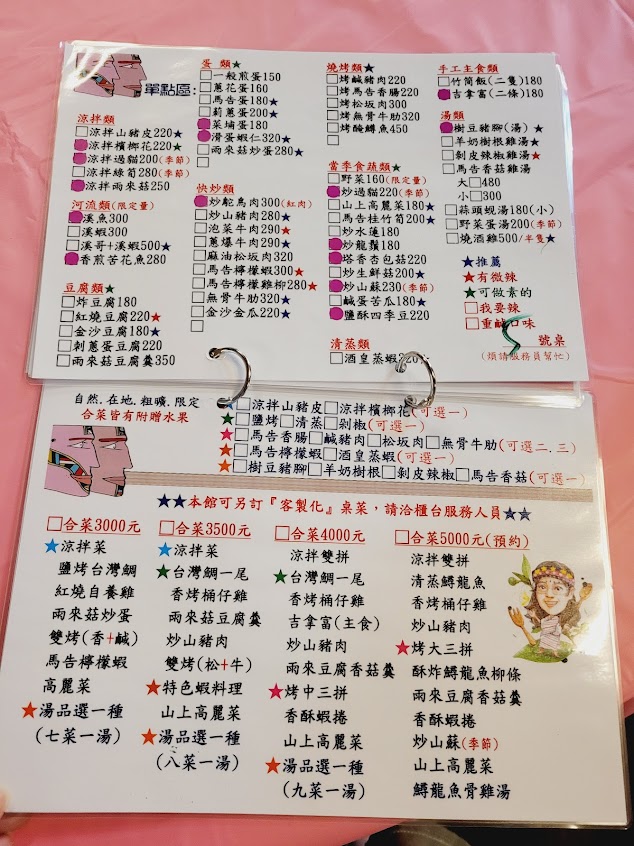 單點區:
涼拌類
□涼拌山豬皮220★
涼拌檳榔花220★
涼拌過貓200(季節)
□涼拌綠筍280(季節)
涼拌雨來菇250
河流類(限定量)
溪魚300
□溪蝦300
□溪哥+溪蝦500★
香煎苦花魚280
豆腐類★
□炸豆腐180
□紅燒豆腐220★
□金沙豆腐180★
□刺蔥豆腐220
□雨來菇豆腐羹350
蛋類★
□一般煎蛋150
□蔥花蛋160
□馬告蛋180★
□莿蔥蛋200★
菜埔蛋180
滑蛋蝦仁320★
□雨來菇炒蛋280★
□
快炒類
炒鴕鳥肉300(紅肉)
□炒山豬肉280★
□泡菜牛肉290★
□蔥爆牛肉290★
□麻油松坂肉320
□馬告檸檬蝦300★
□馬告檸檬雞柳280★
□無骨牛肋320★
□金沙金瓜220★
□
燒烤類★
□烤鹹豬肉220
□烤馬告香腸220
□烤松坂肉300
□烤無骨牛肋320
□烤醃鱒魚450
□
當季食蔬類★
□野菜160(限定量)
炒過貓220(季節)
□山上高麗菜180★
□馬告桂竹筍200★
□炒水蓮180
炒龍鬚180
塔香杏包菇220
□炒生鮮菇200★
炒山蘇230(季節)
□鹹蛋苦瓜180★
鹽酥四季豆220
清蒸類
□酒皇蒸蝦220
手工主食類
□竹筒飯(二隻)180
吉拿富(二條)180
湯類
樹豆豬腳(湯)★
□羊奶樹根雞湯★
□剝皮辣椒雞湯★
□馬告香菇雞湯
大□480
小□300
□蒜頭蜆湯180(小)
□野菜蛋湯200(季節)
□燒酒雞500/半隻★
★推薦
★有微辣
★可做素的
□我要辣
□重鹹口味
5 號桌
(煩請服務員幫忙)
自然.在地.粗曠.限定
合菜皆有附贈水果
□涼拌山豬皮□涼拌檳榔花(可選一)
★□鹽烤□清蒸□剁椒(可選一)
★□馬告香腸□鹹豬肉□松坂肉□無骨牛肋(可選二.三)
★□馬告檸檬蝦□酒皇蒸蝦(可選一)
★□樹豆豬腳□羊奶樹根□剝皮辣椒□馬告香菇(可選一)
★★本館可另訂『客製化』桌菜,請洽櫃台服務人員★★
□合菜3000元
★涼拌菜
鹽烤台灣鯛
紅燒自養雞
雨來菇炒蛋
雙烤(香+鹹)
馬告檸檬蝦
高麗菜
★湯品選一種
(七菜一湯)
□合菜3500元
★涼拌菜
★台灣鯛一尾
香烤桶仔雞
雨來菇豆腐羹
炒山豬肉
雙烤(松+牛)
★特色蝦料理
山上高麗菜
★湯品選一種
(八菜一湯)
□合菜4000元
涼拌雙拼
★台灣鯛一尾
香烤桶仔雞
吉拿富(主食)
炒山豬肉
雨來豆腐香菇羹
★烤中三拼
香酥蝦捲
山上高麗菜
★湯品選一種
(九菜一湯)
□合菜5000元(預約)
涼拌雙拼
清蒸鱘龍魚
香烤桶仔雞
炒山豬肉
★烤大三拼
酥炸鱘龍魚柳條
雨來豆腐香菇羹
香酥蝦捲
炒山蘇(季節)
山上高麗菜
鱘龍魚骨雞湯